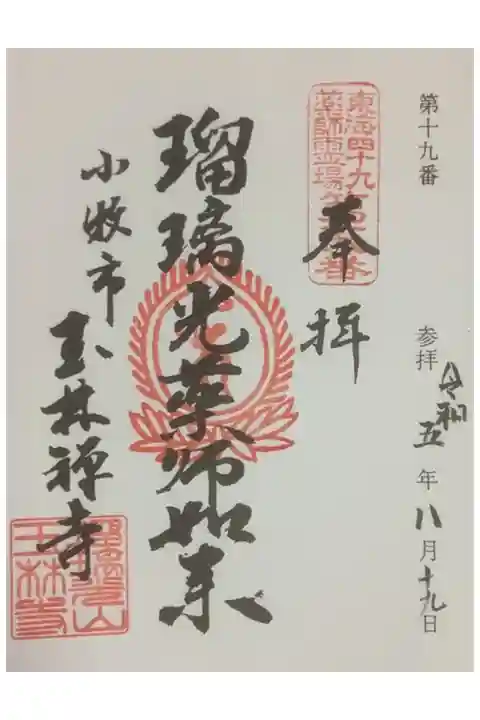 第十九番
参拝 令和五年八月十九日
東海四十九
薬師霊場第十九番
奉拝
瑠璃光薬師如来
小牧市 玉林禅寺
玉林寺